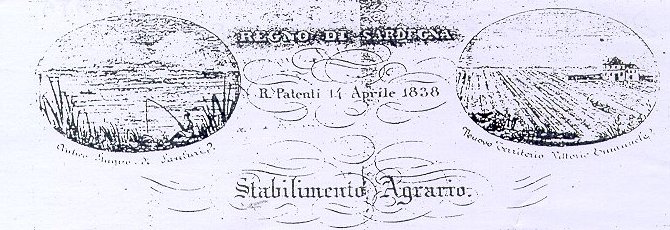 REGNO DI SARDEGNA
R. Patenti 14 Aprile 1838
Antico Stagno di Sanluri
Nuovo Territorio Vittorio Emanuele
Stabilimento Agrario.